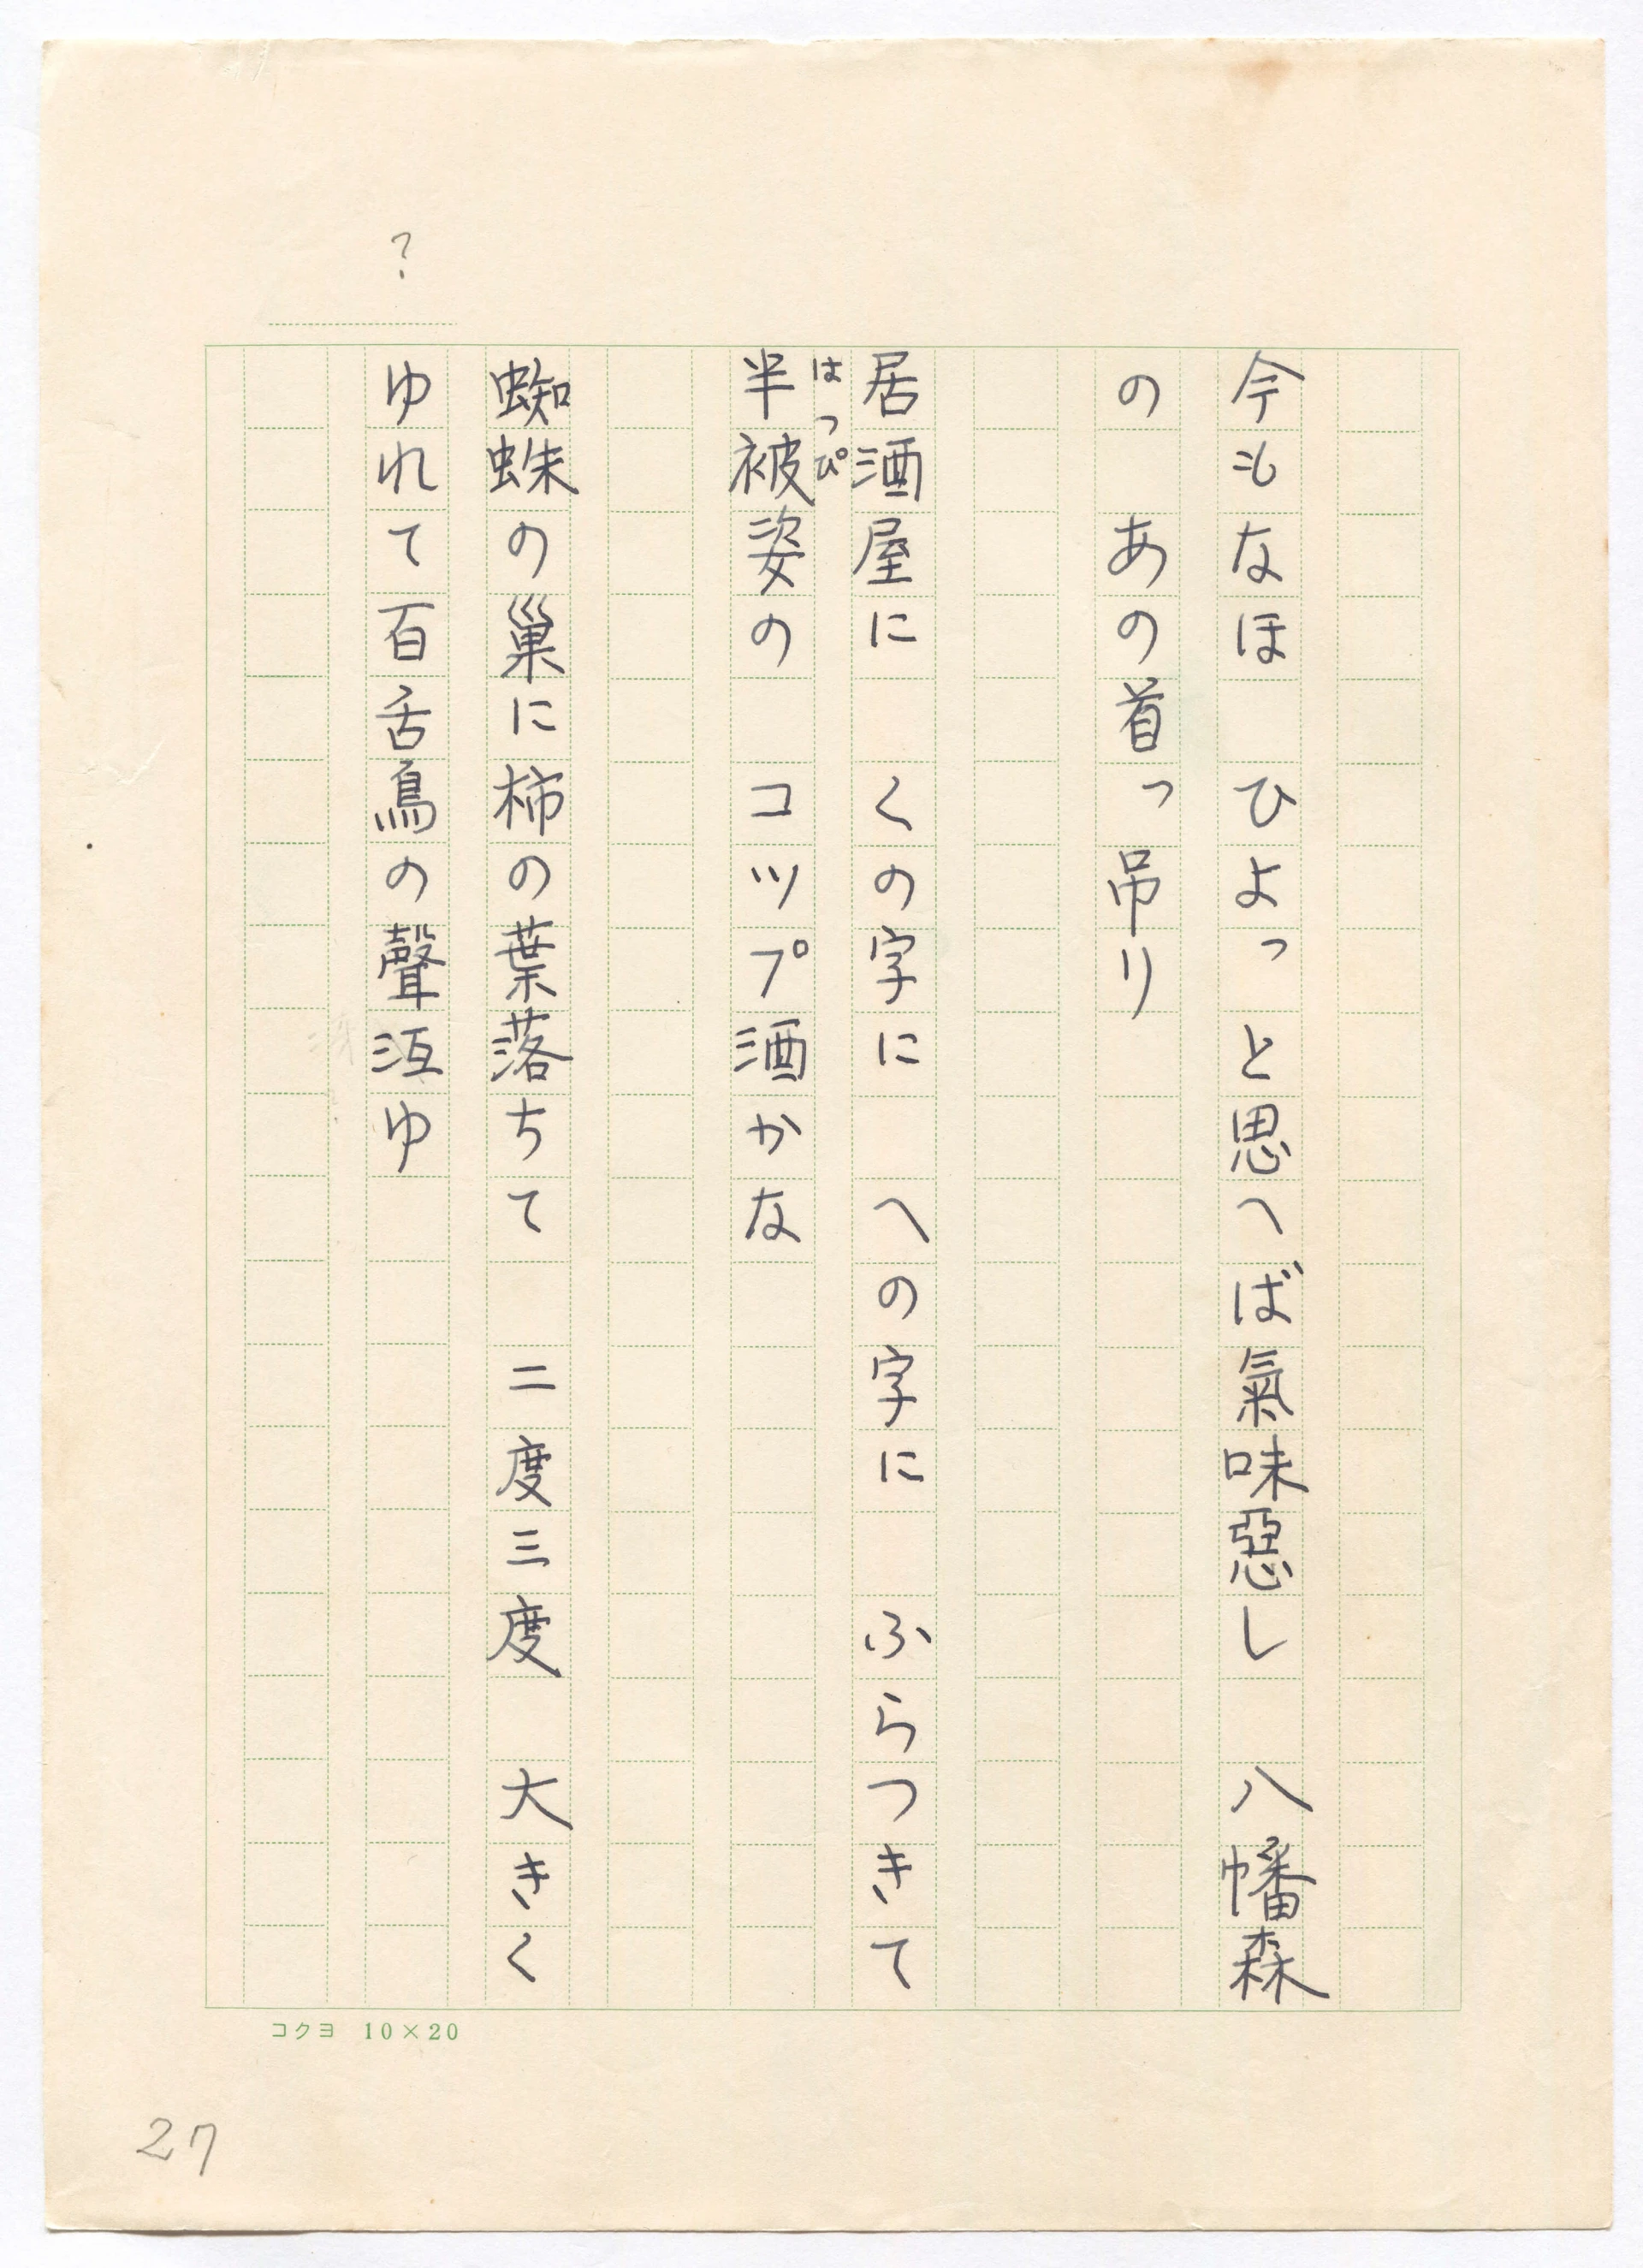 今もなほ　ひよっと思へば氣味惡し　八幡森
の　あの首っ吊り
居酒屋に　くの字に　への字に　ふらつきて
はっぴ
半被姿の　コップ酒かな
蜘蛛の巢に柿の葉落ちて　二度三度　大きく
？
ゆれて百舌鳥の聲沍ゆ
コクヨ 10×20
27